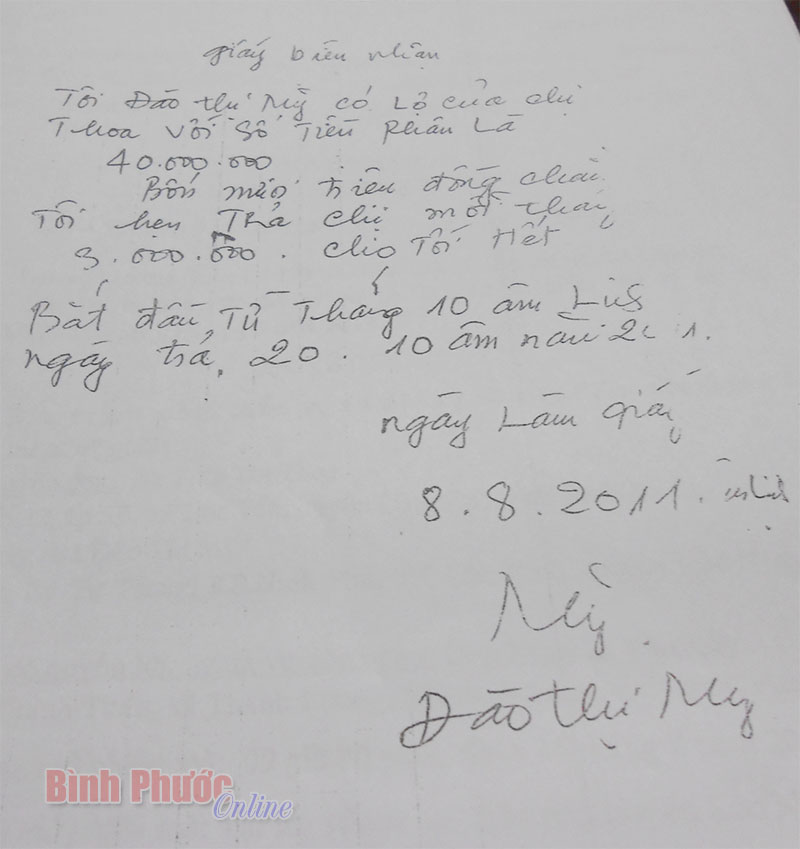 giấy biên nhận
Tôi Đào thị Mỳ có Lộ của chị
Thoa với số Tiền phân Là
40.000.000
Bốn mươi triệu đồng chẵn
Tôi hẹn Trả chị mỗi tháng
3.000.000. cho Tới Hết
Bắt đầu, Từ Tháng 10 âm Lịch
ngày trả, 20. 10 âm năm 2011.
ngày Làm giấy
8.8.2011. âm lịch
Mỳ
Đào thị Mỳ
Bình Phước
Online